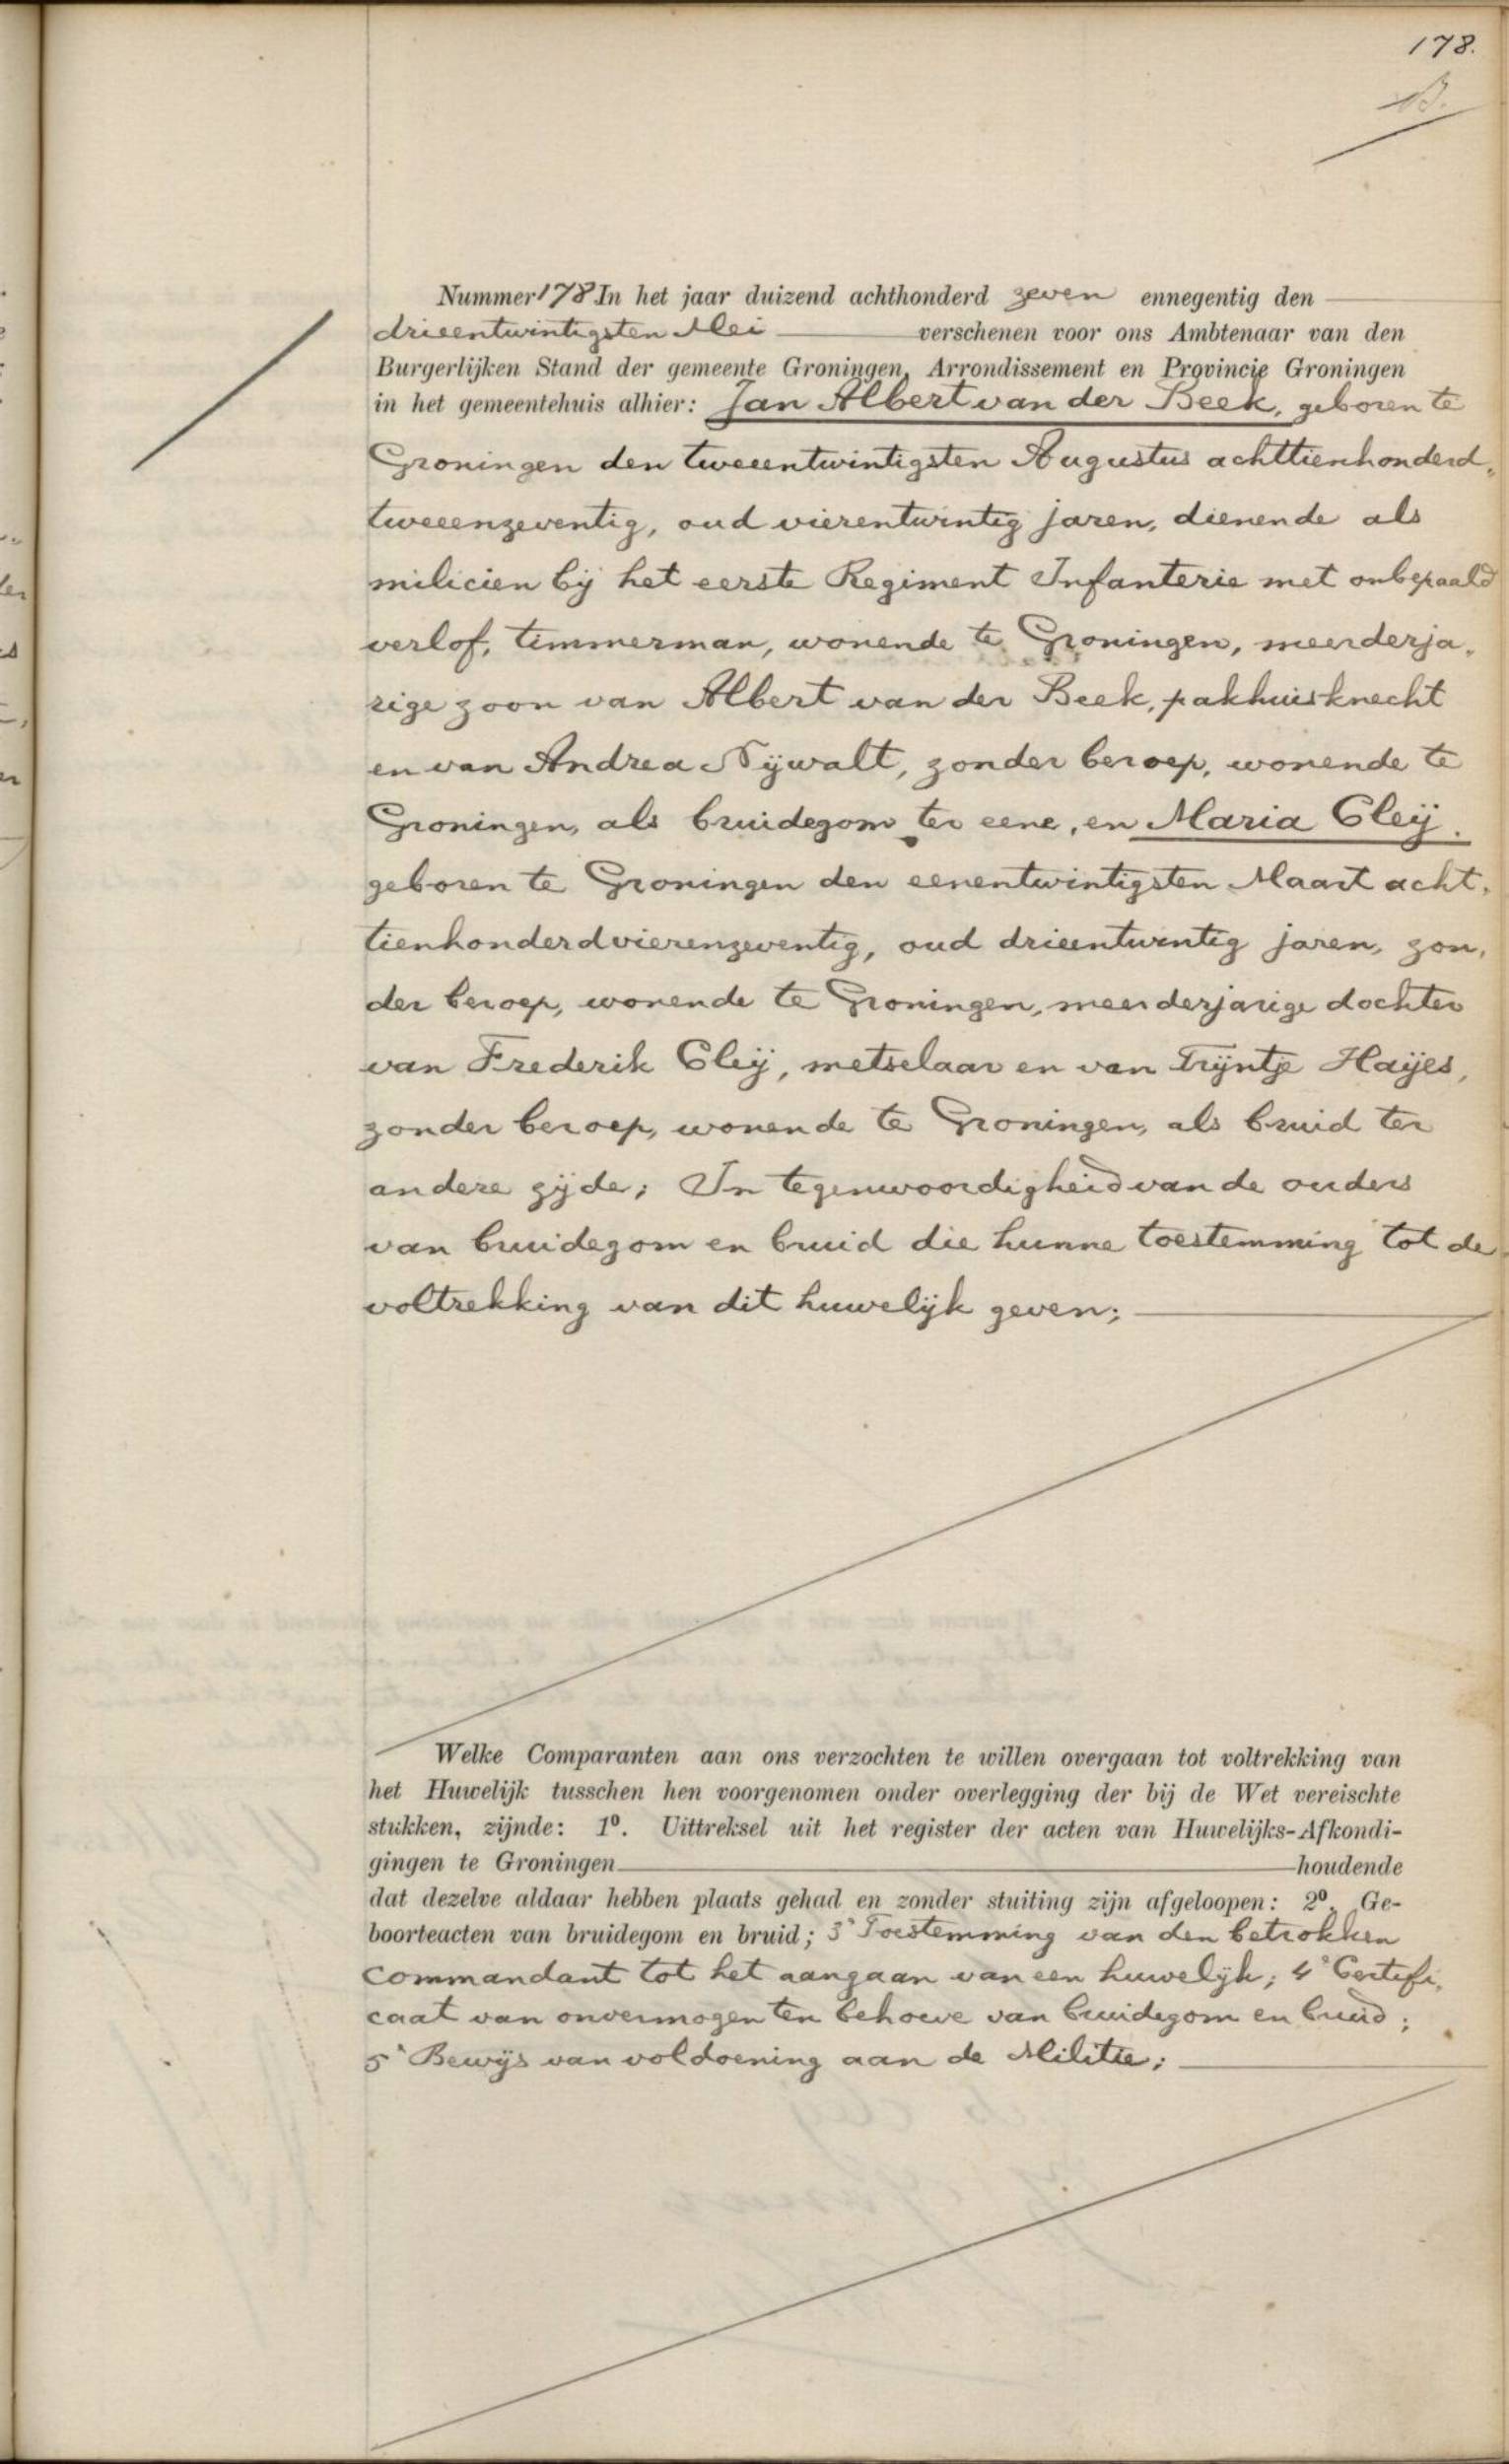 178.
B.
Nummer 178 In het jaar duizend achthonderd zeven ennegentig den
drieentwintigsten Mei verschenen voor ons Ambtenaar van den
Burgerlijken Stand der gemeente Groningen, Arrondissement en Provincie Groningen
in het gemeentehuis alhier: Jan Albert van der Beek, geboren te
Groningen den tweeentwintigsten Augustus achttienhonderd,
tweeenzeventig, oud vierentwintig jaren, dienende als
milicien bij het eerste Regiment Infanterie met onbepaald
verlof, timmerman, wonende te Groningen, meerderja,
rige zoon van Albert van der Beek, pakhuisknecht
en van Andrea Nijwalt, zonder beroep, wonende te
Groningen, als bruidegom ter eene, en Maria Cleij.
geboren te Groningen den eenentwintigsten Maart acht,
tienhonderdvierenzeventig, oud drieentwintig jaren, zon,
der beroep, wonende te Groningen, meerderjarige dochter
van Frederik Cleij, metselaar en van Trijntje Haijes,
zonder beroep, wonende te Groningen, als bruid ter
andere zijde; In tegenwoordigheid van de ouders
van bruidegom en bruid die hunne toestemming tot de
voltrekking van dit huwelijk geven;
Welke Comparanten aan ons verzochten te willen overgaan tot voltrekking van
het Huwelijk tusschen hen voorgenomen onder overlegging der bij de Wet vereischte
stukken, zijnde: 1º. Uittreksel uit het register der acten van Huwelijks-Afkondi-
gingen te Groningen houdende
dat dezelve aldaar hebben plaats gehad en zonder stuiting zijn afgeloopen: 2º. Ge-
boorteacten van bruidegom en bruid; 3° Toestemming van den betrokken
Commandant tot het aangaan van een huwelijk; 4° Certifi,
caat van onvermogen ten behoeve van bruidegom en bruid;
5° Bewijs van voldoening aan de Militie;